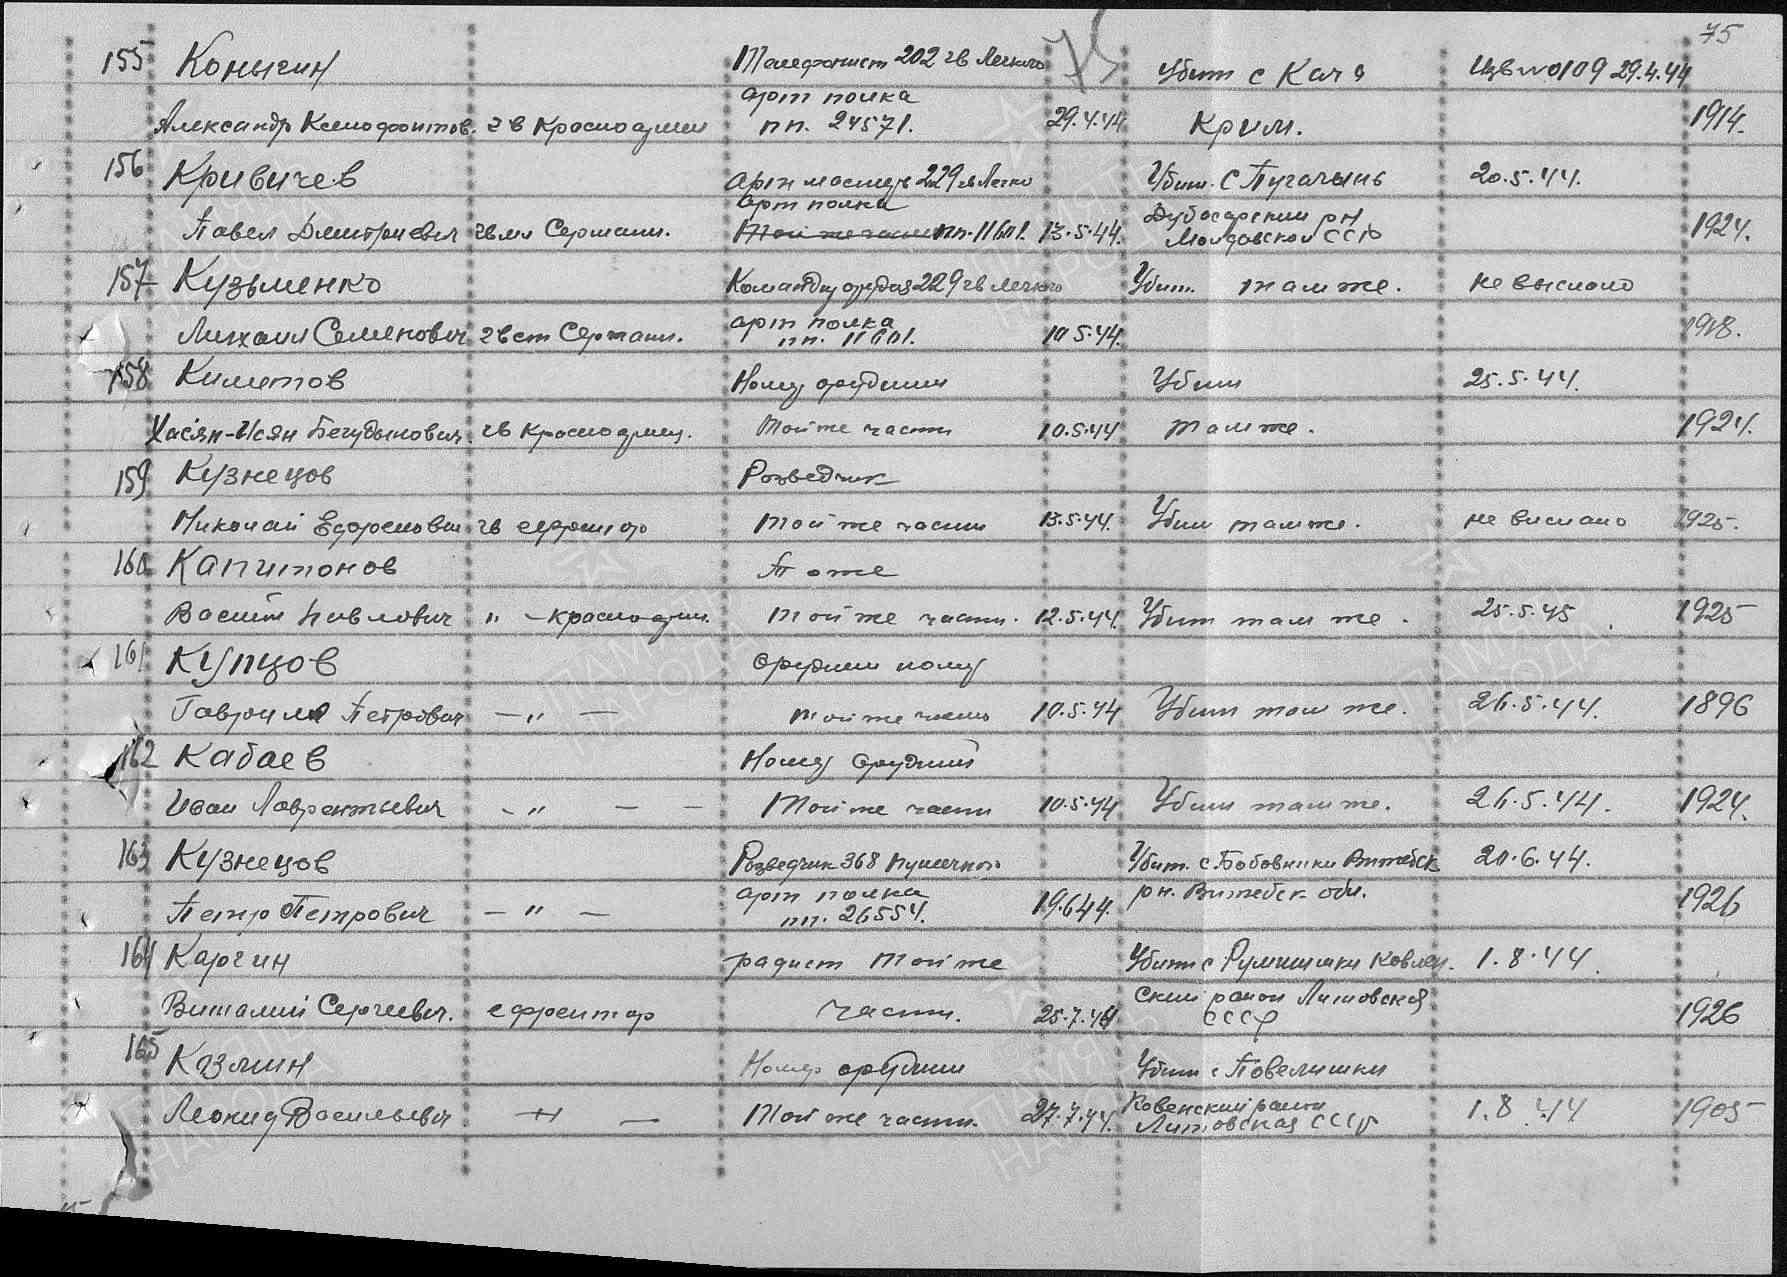 75
155 Конычин Телефонист 202 гв Легкого 75 Убит с Кача Извno109 29.4.44
арт полка
Александр Ксенофонтов. гв Красноармеец пп. 24571. 29.4.44 Крым. 1914.
156 Кривичев арт мастер 229 гв Легко Убит. С Пугачены 20.5.44.
арт полка Дубосарский рн
Павел Дмитриевич гв мл Сержант. Той же части пп. 11601. 13.5.44. Молдовской ССР 1924.
157 Кузьменко Командир орудия 229 гв легкого Убит. там же. не выслано
арт полка
Михаил Семенович гв ст Сержант. пп. 11601. 10.5.44. 1918.
158 Киметов Номер орудийный Убит 25.5.44.
Хасян-Исян гв Красноармеец. Той же части 10.5.44 там же. 1924.
159 Кузнецов Розведчик
Николай гв ефрейтор той же части 13.5.44. Убит там же. не вислано 1925.
160 Капитонов То же
Васили Павлович " - красноарм. той же части. 12.5.44. Убит там же. 25.5.45 1925
161 Купцов орудийн номер
Гавриил Петрович - " - той же часть 10.5.44 Убит там же. 26.5.44. 1896
162 Кабаев Номер орудний
Иван Лаврентьевич - " - - Той же части 10.5.44 Убит там же. 26.5.44. 1924.
163 Кузнецов Розведчик 368 пушечного Убит. с Бобовники Витебск 20.6.44.
арт полка рн. Витебск обл.
Петр Петрович - " - пп. 26554. 19.6.44. 1926
164 Каргин радист той же Убит с Румшишки Ковен. 1.8.44.
Виталий Сергеевич. ефрейтор части. 25.7.44 ский район Литовская 1926
СССР
165 Козмин Номер орудийн Убит с Повелишки
Леонид Васильевич - " - Той же части. 27.7.44. Ковенский район 1.8.44 1905
Литовская СССР